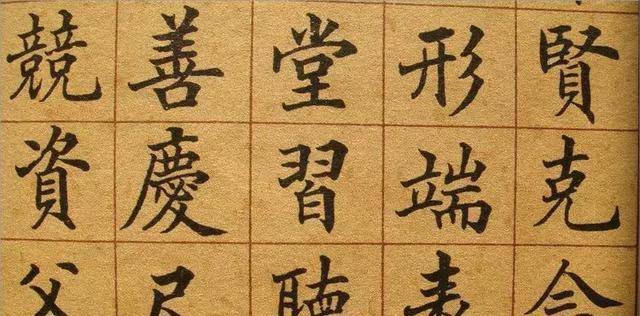 賢克念
形端表
堂習聽
善慶尺
競資父